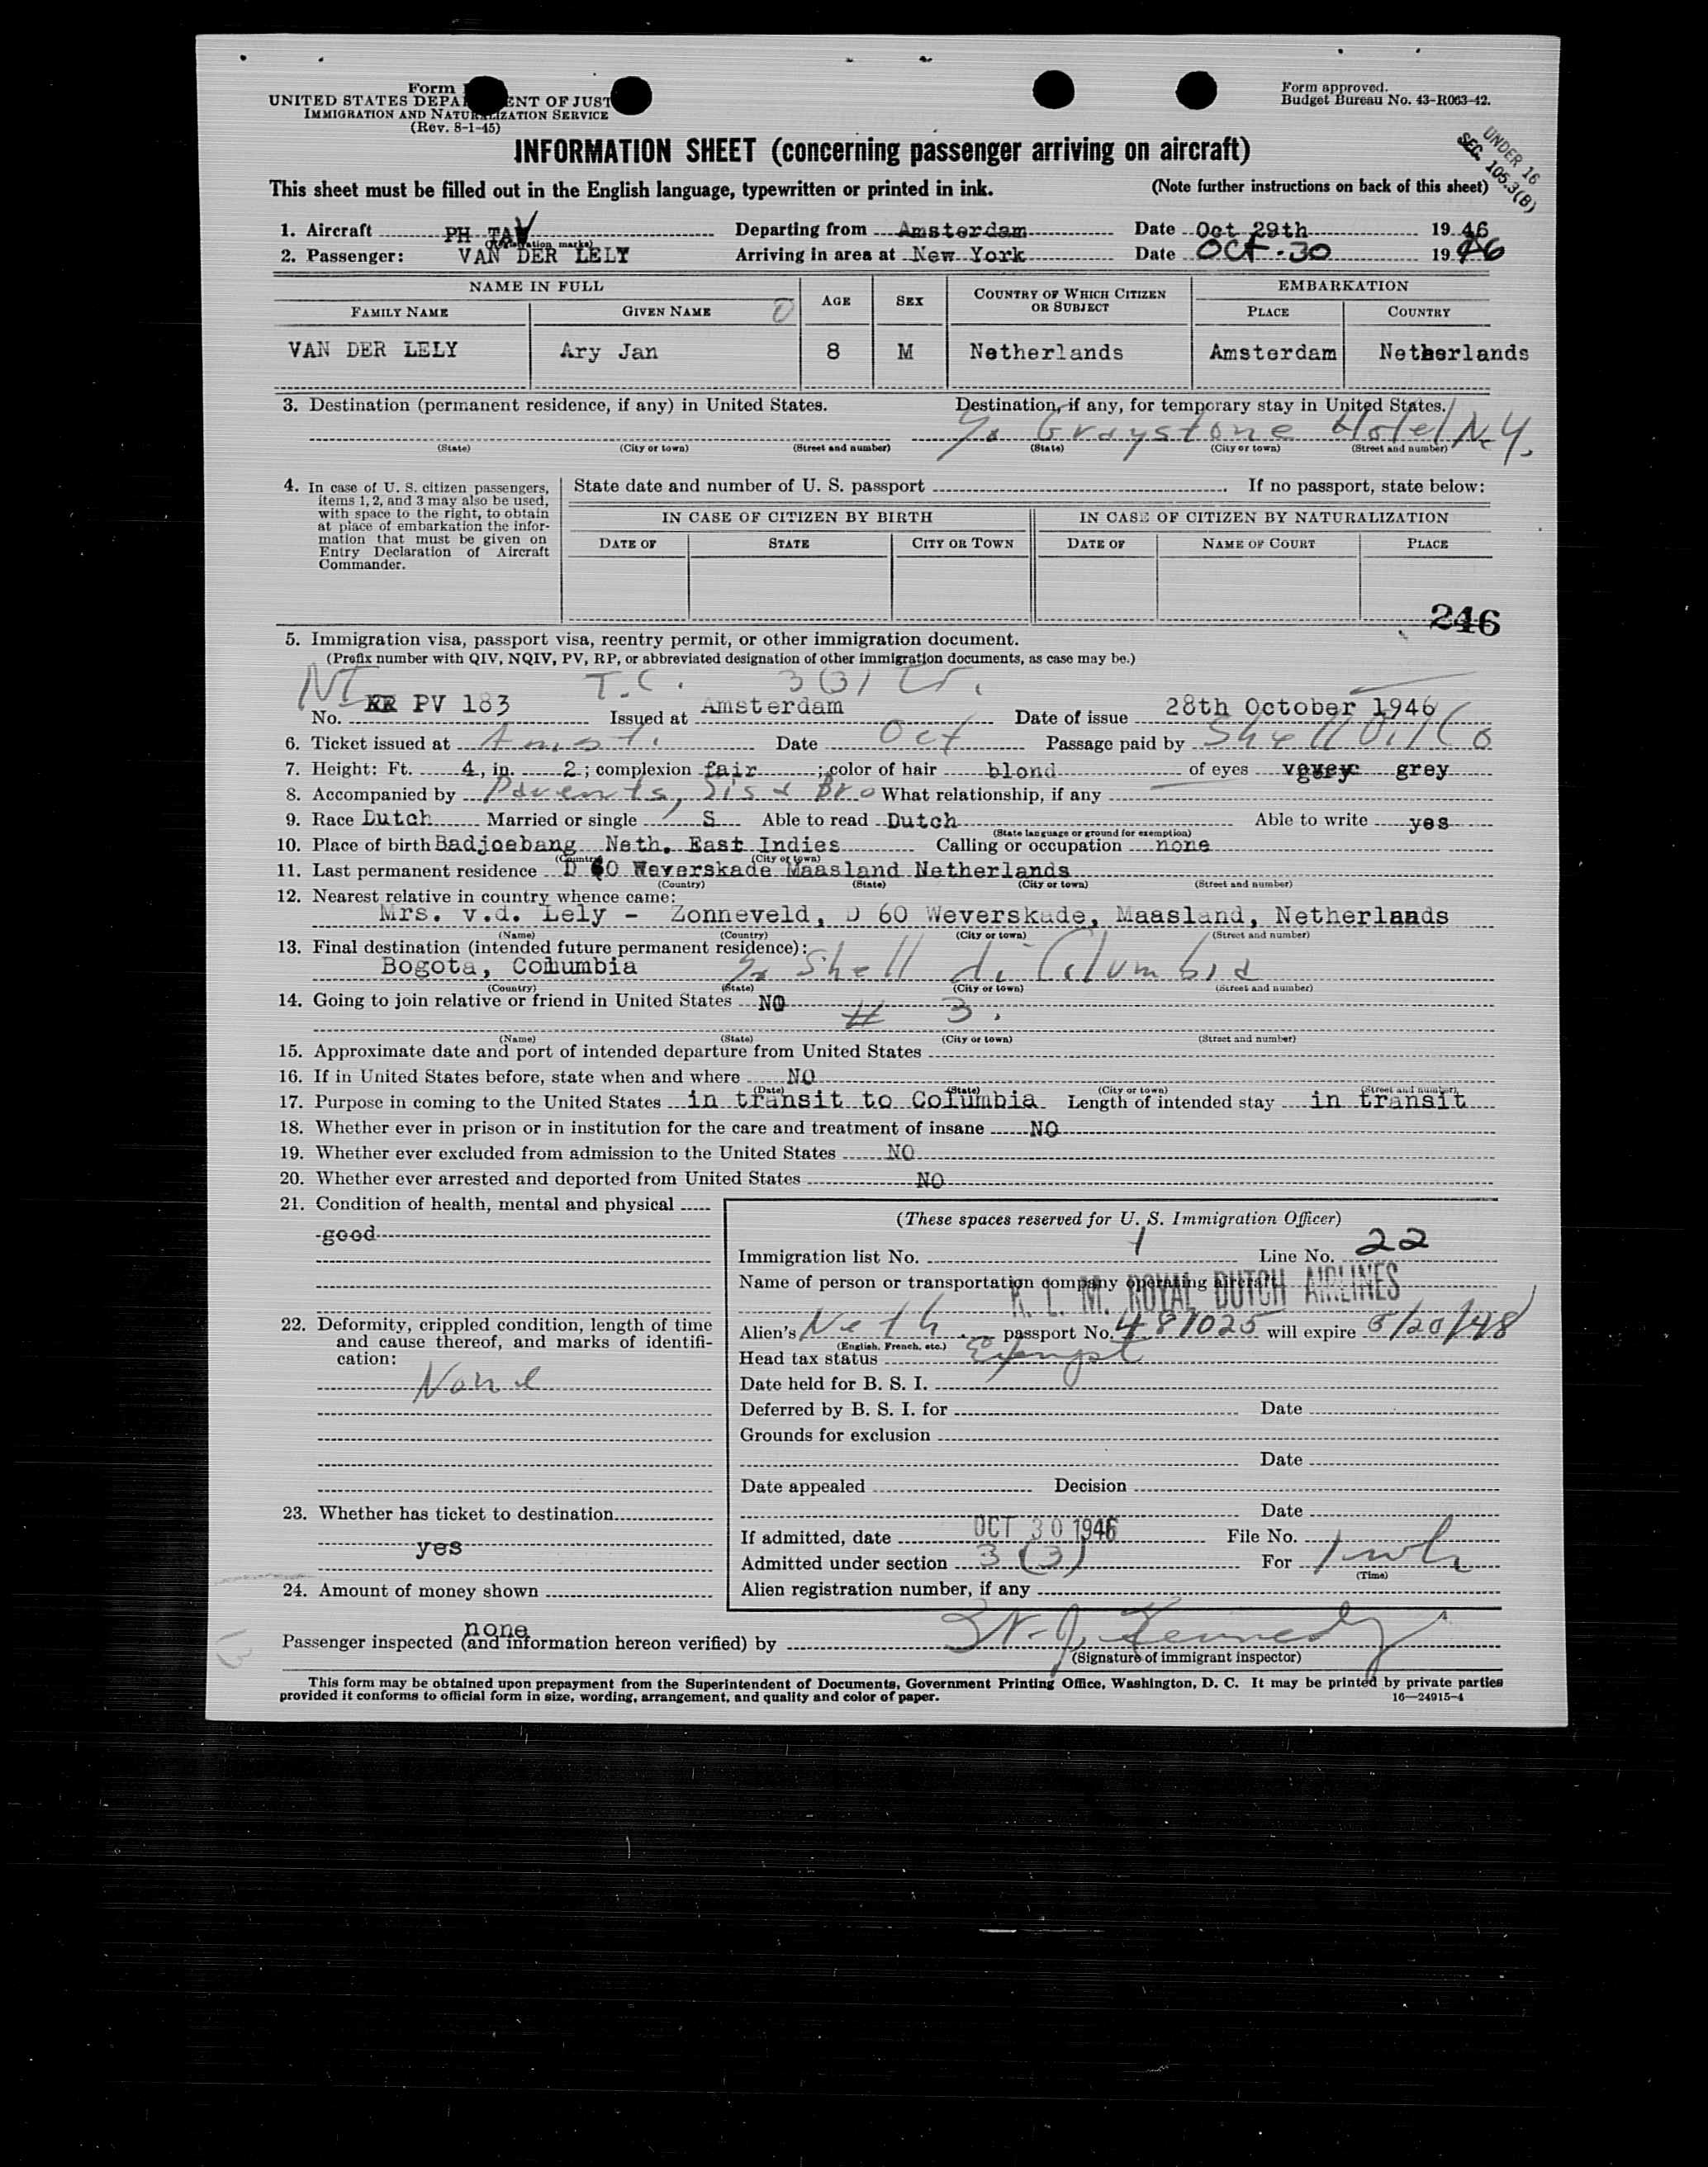 Form
UNITED STATES DEPA ENT OF JUST
IMMIGRATION AND NATURALIZATION SERVICE
(Rev. 8-1-45)
Form approved.
Budget Bureau No. 43-R063-42.
UNDER 16
SEC. 105.3(B)
INFORMATION SHEET (concerning passenger arriving on aircraft)
This sheet must be filled out in the English language, typewritten or printed in ink. (Note further instructions on back of this sheet)
1. Aircraft PH TAV Departing from Amsterdam Date Oct 29th 1946
(Registration marks)
2. Passenger: VAN DER LELY Arriving in area at New York Date Oct. 30 1946
NAME IN FULL AGE SEX COUNTRY OF WHICH CITIZEN OR SUBJECT EMBARKATION
FAMILY NAME GIVEN NAME PLACE COUNTRY
VAN DER LELY Ary Jan 8 M Netherlands Amsterdam Netherlands
3. Destination (permanent residence, if any) in United States. Destination, if any, for temporary stay in United States.
Graystone Hotel N.Y.
(State) (City or town) (Street and number) (State) (City or town) (Street and number)
4. In case of U. S. citizen passengers, items 1, 2, and 3 may also be used, with space to the right, to obtain at place of embarkation the information that must be given on Entry Declaration of Aircraft Commander.
State date and number of U. S. passport If no passport, state below:
IN CASE OF CITIZEN BY BIRTH IN CASE OF CITIZEN BY NATURALIZATION
DATE OF STATE CITY OR TOWN DATE OF NAME OF COURT PLACE
246
5. Immigration visa, passport visa, reentry permit, or other immigration document.
(Prefix number with QIV, NQIV, PV, RP, or abbreviated designation of other immigration documents, as case may be.)
T.C. 3(3) Tr.
No. PV 183 Issued at Amsterdam Date of issue 28th October 1946
6. Ticket issued at Amst. Date Oct Passage paid by Shell Oil Co
7. Height: Ft. 4, in. 2; complexion fair; color of hair blond of eyes grey
8. Accompanied by Parents, Sis & Bro What relationship, if any
9. Race Dutch Married or single S Able to read Dutch Able to write yes
(State language or ground for exemption)
10. Place of birth Badjoebang Neth. East Indies Calling or occupation none
(Country) (City or town)
11. Last permanent residence D 60 Weverskade Maasland Netherlands
(Country) (State) (City or town) (Street and number)
12. Nearest relative in country whence came:
Mrs. v.d. Lely - Zonneveld, D 60 Weverskade, Maasland, Netherlands
(Name) (Country) (City or town) (Street and number)
13. Final destination (intended future permanent residence):
Bogota, Columbia Shell di Columbia
(Country) (State) (City or town) (Street and number)
14. Going to join relative or friend in United States NO
# 3.
(Name) (State) (City or town) (Street and number)
15. Approximate date and port of intended departure from United States
16. If in United States before, state when and where NO
(Date) (State) (City or town) (Street and number)
17. Purpose in coming to the United States in transit to Columbia Length of intended stay in transit
18. Whether ever in prison or in institution for the care and treatment of insane NO
19. Whether ever excluded from admission to the United States NO
20. Whether ever arrested and deported from United States NO
21. Condition of health, mental and physical
good
22. Deformity, crippled condition, length of time and cause thereof, and marks of identification:
None
23. Whether has ticket to destination
yes
24. Amount of money shown
none
(These spaces reserved for U. S. Immigration Officer)
Immigration list No. 1 Line No. 22
Name of person or transportation company operating aircraft
K. L. M. ROYAL DUTCH AIRLINES
Alien's Neth. passport No. 481025 will expire 5/20/48
(English, French, etc.)
Head tax status Exempt
Date held for B. S. I.
Deferred by B. S. I. for Date
Grounds for exclusion
Date
Date appealed Decision
Date
If admitted, date OCT 30 1946 File No.
Admitted under section 3 (3) For
(Time)
Alien registration number, if any
Passenger inspected (and information hereon verified) by Kennedy
(Signature of immigrant inspector)
This form may be obtained upon prepayment from the Superintendent of Documents, Government Printing Office, Washington, D. C. It may be printed by private parties
provided it conforms to official form in size, wording, arrangement, and quality and color of paper. 16—24915-4